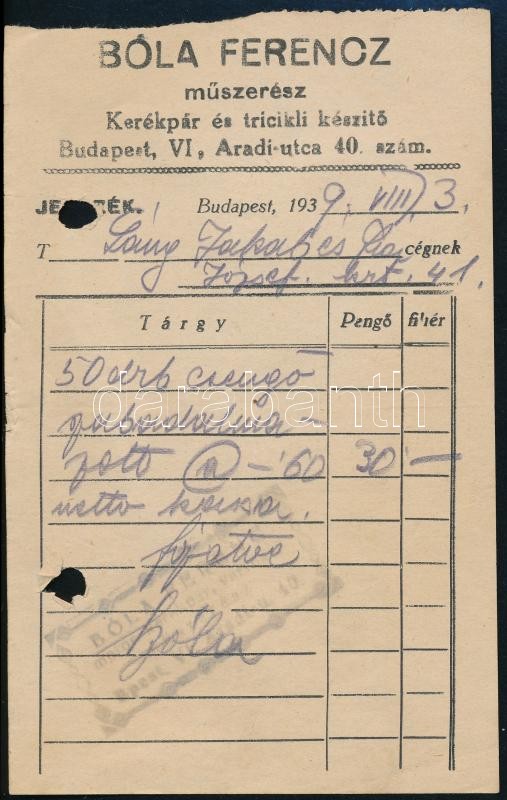 BÓLA FERENCZ
műszerész
Kerékpár és tricikli készitő
Budapest, VI, Aradi-utca 40. szám.
Budapest, 1939. VIII. 3.
T Láng Jakab és Fia cégnek
József krt. 41.
Tárgy Pengő fillér
50 drb csengő
zott a -60 30 -
netto kassa.
Bóla
darabanth
BÓLA